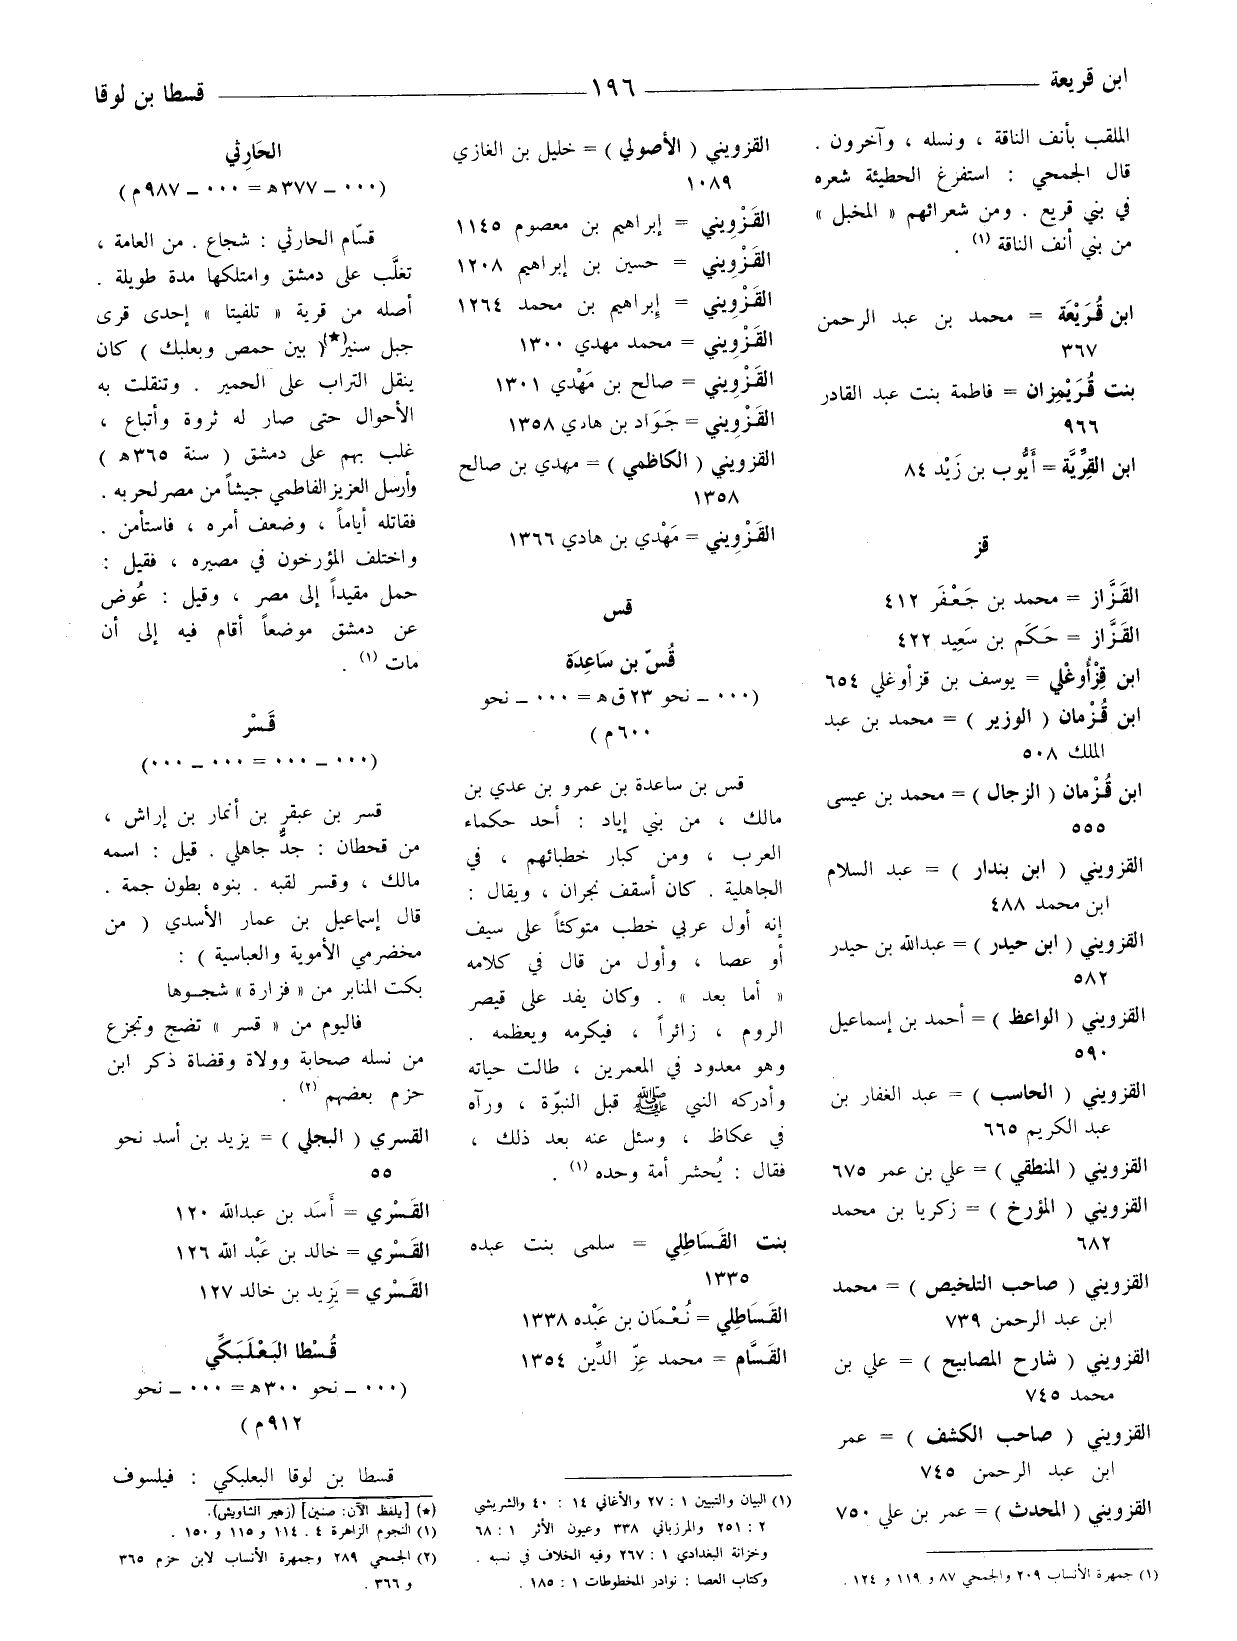 ابن قريعة ١٩٦ قسطا بن لوقا
الملقب بأنف الناقة ، ونسله ، وآخرون .
قال الجمحي : استفرغ الحطيئة شعره
في بني قريع . ومن شعرائهم « المخبل »
من بني أنف الناقة (١) .
ابن قُرَيْعَة = محمد بن عبد الرحمن
٣٦٧
بنت قُرَيْمِزان = فاطمة بنت عبد القادر
٩٦٦
ابن القِرِّيَّة = أَيُّوب بن زَيْد ٨٤
قز
القَزَّاز = محمد بن جَعْفَر ٤١٢
القَزَّاز = حَكَم بن سَعِيد ٤٢٢
ابن قِزْأُوغْلي = يوسف بن قزأوغلي ٦٥٤
ابن قُزْمان ( الوزير ) = محمد بن عبد
الملك ٥٠٨
ابن قُزْمان ( الزجال ) = محمد بن عيسى
٥٥٥
القزويني ( ابن بندار ) = عبد السلام
ابن محمد ٤٨٨
القزويني ( ابن حيدر ) = عبدالله بن حيدر
٥٨٢
القزويني ( الواعظ ) = أحمد بن إسماعيل
٥٩٠
القزويني ( الحاسب ) = عبد الغفار بن
عبد الكريم ٦٦٥
القزويني ( المنطقي ) = علي بن عمر ٦٧٥
القزويني ( المؤرخ ) = زكريا بن محمد
٦٨٢
القزويني ( صاحب التلخيص ) = محمد
ابن عبد الرحمن ٧٣٩
القزويني ( شارح المصابيح ) = علي بن
محمد ٧٤٥
القزويني ( صاحب الكشف ) = عمر
ابن عبد الرحمن ٧٤٥
القزويني ( المحدث ) = عمر بن علي ٧٥٠
(١) جمهرة الأنساب ٢٠٩ والجمحي ٨٧ و ١١٩ و ١٢٤ .
القزويني ( الأصولي ) = خليل بن الغازي
١٠٨٩
القَزْوِيني = إبراهيم بن معصوم ١١٤٥
القَزْوِيني = حسين بن إبراهيم ١٢٠٨
القَزْوِيني = إبراهيم بن محمد ١٢٦٤
القَزْوِيني = محمد مهدي ١٣٠٠
القَزْوِيني = صالح بن مَهْدي ١٣٠١
القَزْوِيني = جَوَاد بن هادي ١٣٥٨
القزويني ( الكاظمي ) = مهدي بن صالح
١٣٥٨
القَزْوِيني = مَهْدي بن هادي ١٣٦٦
قس
قُسّ بن سَاعِدَة
(٠٠٠ ـ نحو ٢٣ ق ه = ٠٠٠ ـ نحو
٦٠٠ م )
قس بن ساعدة بن عمرو بن عدي بن
مالك ، من بني إياد : أحد حكماء
العرب ، ومن كبار خطبائهم ، في
الجاهلية . كان أسقف نجران ، ويقال :
إنه أول عربي خطب متوكئاً على سيف
أو عصا ، وأول من قال في كلامه
« أما بعد » . وكان يفد على قيصر
الروم ، زائراً ، فيكرمه ويعظمه .
وهو معدود في المعمرين ، طالت حياته
وأدركه النبي ﷺ قبل النبوّة ، ورآه
في عكاظ ، وسئل عنه بعد ذلك ،
فقال : يُحشر أمة وحده (١) .
بنت القَسَاطِلي = سلمى بنت عبده
١٣٣٥
القَسَاطِلي = نُعْمَان بن عَبْده ١٣٣٨
القَسَّام = محمد عِزّ الدِّين ١٣٥٤
(١) البيان والتبيين ١ : ٢٧ والأغاني ١٤ : ٤٠ والشريشي
٢ : ٢٥١ والمرزباني ٣٣٨ وعيون الأثر ١ : ٦٨
وخزانة البغدادي ١ : ٢٦٧ وفيه الخلاف في نسبه .
وكتاب العصا : نوادر المخطوطات ١ : ١٨٥ .
الحَارِثي
(٠٠٠ ـ ٣٧٧ ه = ٠٠٠ ـ ٩٨٧ م)
قسّام الحارثي : شجاع . من العامة ،
تغلَّب على دمشق وامتلكها مدة طويلة .
أصله من قرية « تلفيتا » إحدى قرى
جبل سنير(★)( بين حمص وبعلبك ) كان
ينقل التراب على الحمير . وتنقلت به
الأحوال حتى صار له ثروة وأتباع ،
غلب بهم على دمشق ( سنة ٣٦٥ ه )
وأرسل العزيز الفاطمي جيشاً من مصر لحربه .
فقاتله أياماً ، وضعف أمره ، فاستأمن .
واختلف المؤرخون في مصيره ، فقيل :
حمل مقيداً إلى مصر ، وقيل : عُوض
عن دمشق موضعاً أقام فيه إلى أن
مات (١) .
قَسْر
(٠٠٠ ـ ٠٠٠ = ٠٠٠ ـ ٠٠٠)
قسر بن عبقر بن أنمار بن إراش ،
من قحطان : جدٌّ جاهلي . قيل : اسمه
مالك ، وقسر لقبه . بنوه بطون جمة .
قال إسماعيل بن عمار الأسدي ( من
مخضرمي الأموية والعباسية ) :
بكت المنابر من « فزارة » شجـوها
فاليوم من « قسر » تضج وتجزع
من نسله صحابة وولاة وقضاة ذكر ابن
حزم بعضهم (٢) .
القسري ( البجلي ) = يزيد بن أسد نحو
٥٥
القَسْري = أَسَد بن عبدالله ١٢٠
القَسْري = خالد بن عَبْد الله ١٢٦
القَسْري = يَزِيد بن خالد ١٢٧
قُسْطا البَعْلَبَكِّي
(٠٠٠ ـ نحو ٣٠٠ ه = ٠٠٠ ـ نحو
٩١٢ م )
قسطا بن لوقا البعلبكي : فيلسوف
(★) [يلفظ الآن: صنين] (زهير الشاويش).
(١) النجوم الزاهرة ٤ . ١١٤ و ١١٥ و ١٥٠ .
(٢) الجمحي ٢٨٩ وجمهرة الأنساب لابن حزم ٣٦٥
و ٣٦٦ .